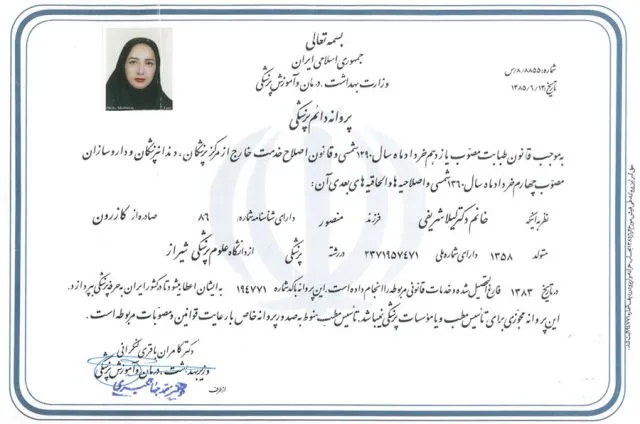 بسمه تعالی
جمهوری اسلامی ایران
وزارت بهداشت، درمان و آموزش پزشکی
شماره: ۸۸۵۵/۸/س
تاریخ: ۱۳۸۵/۶/۱۴
پروانه دائم پزشکی
به موجب قانون طبابت مصوب یازدهم خرداد ماه سال ۱۲۹۰ شمسی و قانون اصلاح خدمت خارج از مرکز پزشکان، دندانپزشکان و داروسازان
مصوب چهارم خرداد ماه سال ۱۳۶۰ شمسی و اصلاحیه ها و الحاقیه های بعدی آن:
نظر به اینکه خانم دکتر لیلا شریفی فرزند منصور دارای شناسنامه شماره: ۸۶ صادره از کازرون
متولد ۱۳۵۸ دارای شماره ملی ۲۳۷۱۹۵۷۴۷۱ در رشته پزشکی از دانشگاه علوم پزشکی شیراز
در تاریخ ۱۳۸۳ فارغ التحصیل شده و خدمات قانونی مربوطه را انجام داده است. این پروانه با کد شماره ۱۹۴۷۷۱ به ایشان اعطا میشود تا در کشور ایران به حرفه پزشکی بپردازد.
این پروانه مجوزی برای تأسیس مطب و یا مؤسسات پزشکی نمیباشد. تأسیس مطب منوط به صدور پروانه خاص با رعایت قوانین و مصوبات مربوطه است.
دکتر کامران باقری لنکرانی
وزیر بهداشت، درمان و آموزش پزشکی
از طرف